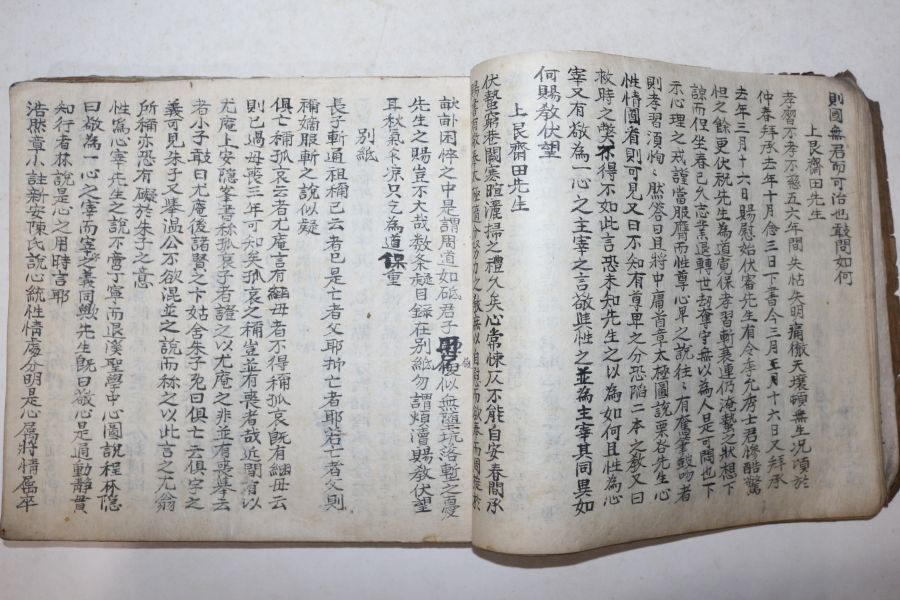 則國無君而可治也敢問如何
上艮齋田先生
孝習不孝不慈五六年間失怙失明痛徹天壤頓無生況頃於
仲春拜承去年十月念三日下書今三月五月十六日又拜承
去年三月十六日賜慰始伏審先生有令季允府士君慘酷驚
怛之餘更伏祝先生為道寬保孝習斬衰連仍淹蟄之狀想下
諒而但坐春已久志業退轉世刼奪守無以為人是可悶也下
示心理之戒謹當服膺而性尊心卑之說往有奮筆鼓吻者
則孝習須恂然答曰且將中庸首章太極圖說栗谷先生心
性情圖看則可見又曰不知有尊卑之分恐陷二本之教又曰
救時之弊不得不如此言恐未知先生之以為如何且性為心
宰又有敬為一心之主宰之言敬與性之並為主宰其同異如
何賜教伏望
上艮齋田先生
伏蟄窮巷闕寒暄灑掃之禮久矣心常悚仄不能自安春間承
先生之賜豈不大哉数条疑目錄在別紙勿謂煩瀆賜教伏望
耳秋氣乍凉只乞為道保重
別紙
長子斬適祖禰已云者已是亡者父耶抑亡者耶若亡者父則
禰嫡服斬之說似疑
俱亡稱孤哀云者尤庵言有継母者不得稱孤哀旣有継母云
則已過母喪三年可知矣孤哀之稱豈並有喪者哉近間有以
尤庵上安隱峯書称孤哀子者證之以尤庵之非並有喪擧云
者小子敢曰尤庵後諸賢之下姑舍朱子兄曰俱亡云俱字之
義可見朱子又擧温公不欲混並之說而称之以此言之尤翁
所稱亦恐有礙於朱子之意
性為心宰先生之說不啻丁寧而退溪聖學中心圖說程林隱
曰敬為一心之宰而宰之義同歟先生旣曰敬心是通動靜貫
知行者林說是心之用時言耶
浩然章小註新安陳氏說心統性情處分明是心屬將情屬卒